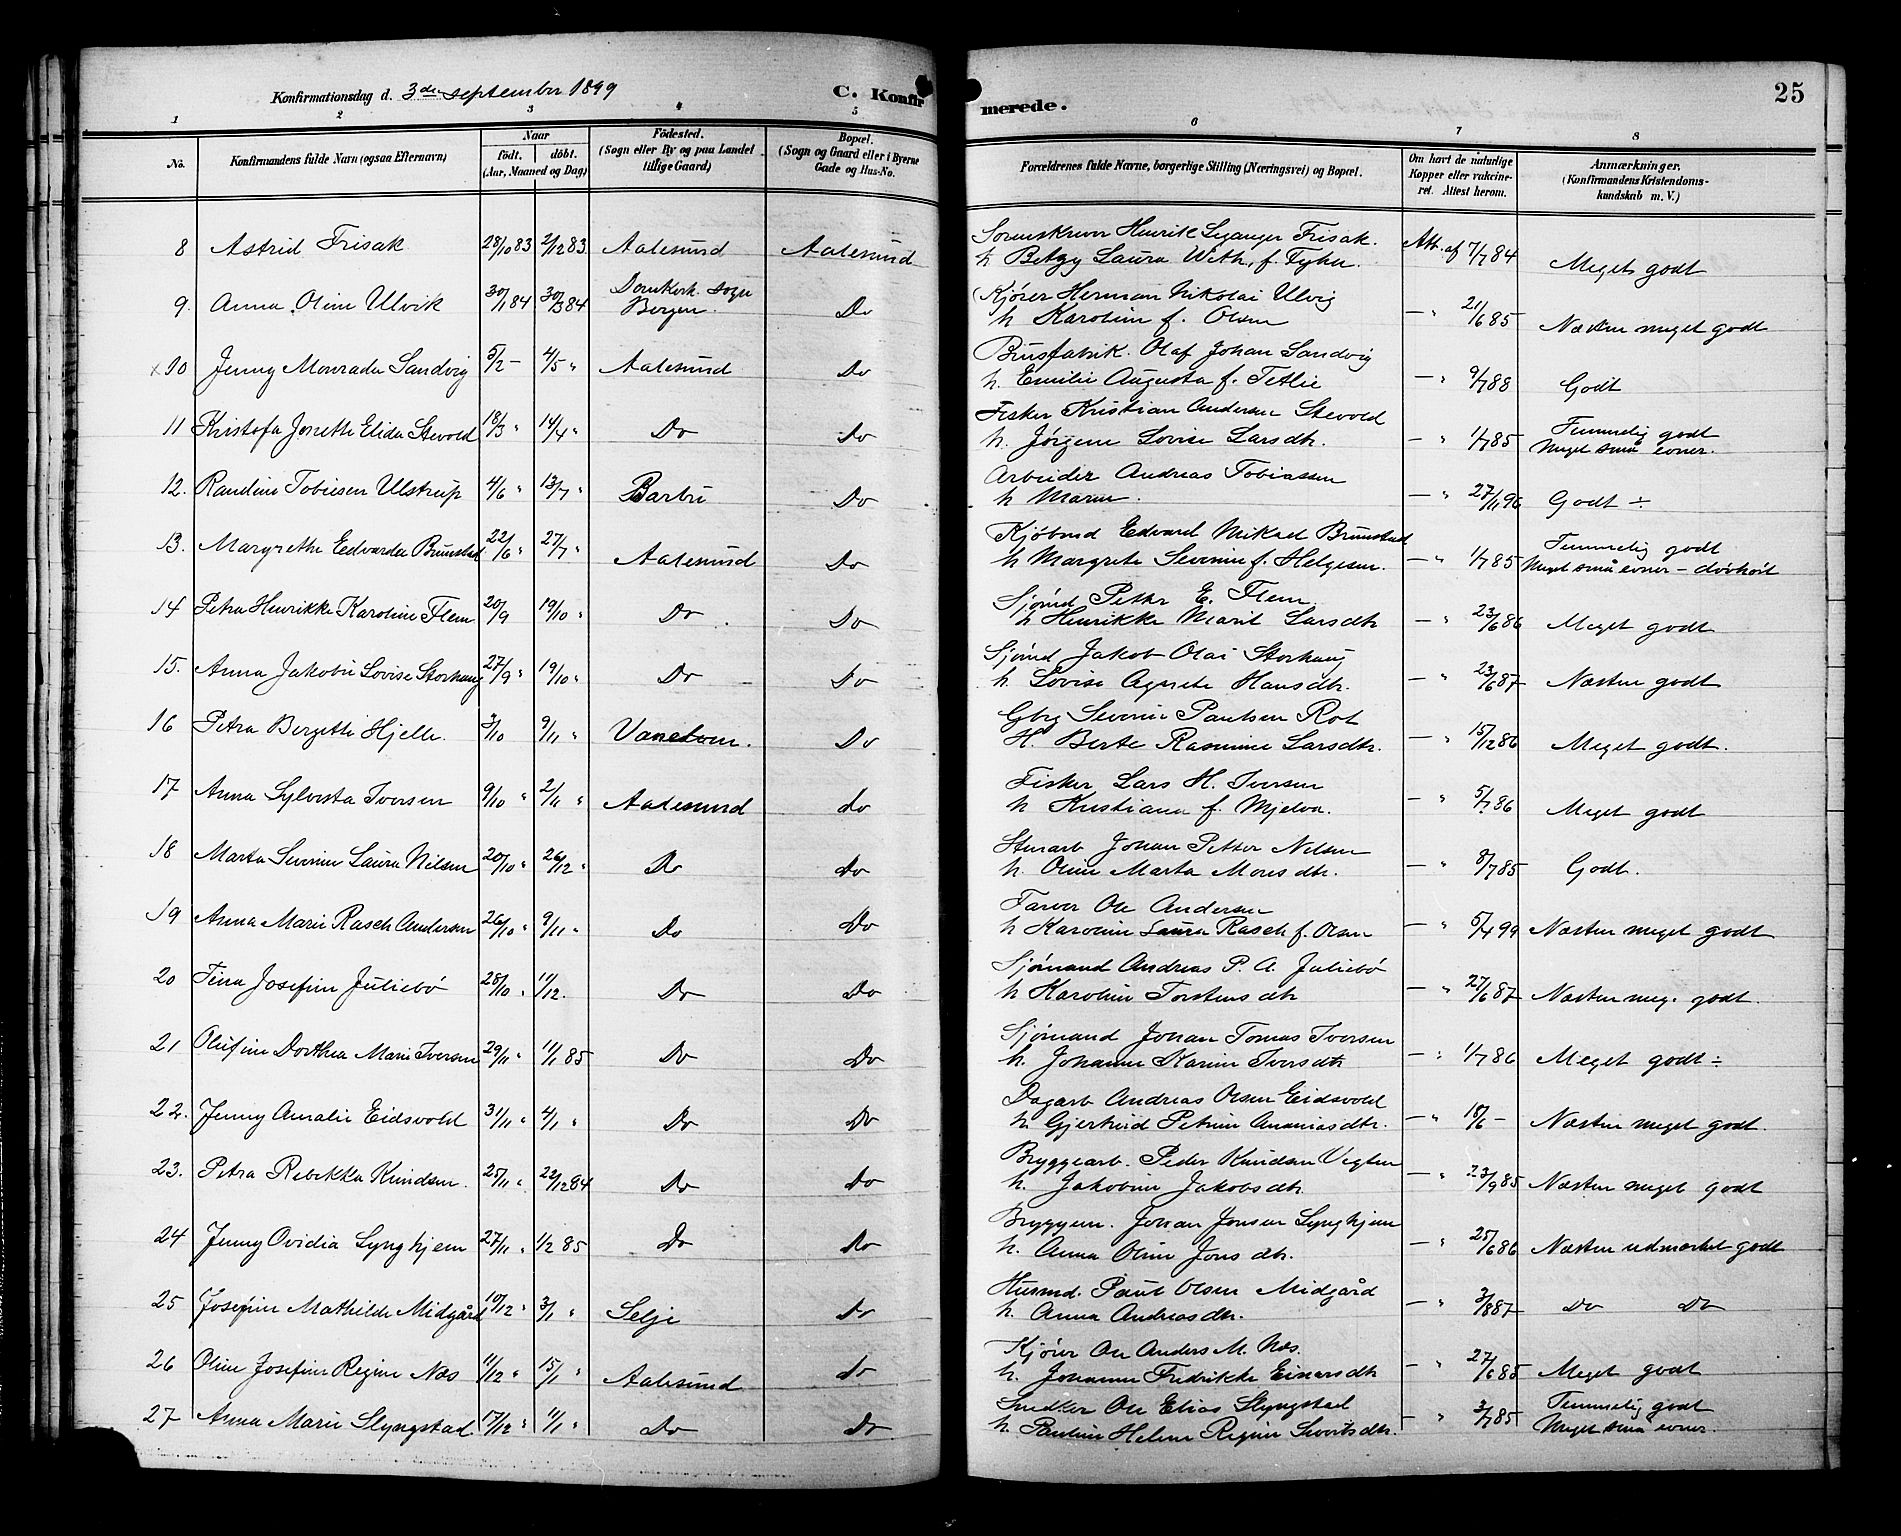 25
Konfirmationsdag d. 3de september 1899 C. Konfirmerede.
1 2 3 4 5 6 7 8
No. Konfirmandens fulde Navn (ogsaa Efternavn) Naar født. døbt. (Aar, Maaned og Dag) Fødested. (Sogn eller By og paa Landet tillige Gaard) Bopæl. (Sogn og Gaard eller i Byerne Gade og Hus-No. Forældrenes fulde Navne, borgerlige Stilling (Næringsvei) og Bopæl. Om havt de naturlige Kopper eller vakcineret. Attest herom. Anmærkninger. (Konfirmandens Kristendomskundskab m. V.)
8 Astrid Frisak 28/10 83 2/12 83 Aalesund Aalesund Sorenskriver Henrik Leganger Frisak. h. Betzy Laura Weth, f. Att. af 7/7 84 Meget godt
9. Anna Oline Ulvik 30/1 84 30/3 84 Domkirk. sogn Bergen. Do Kjører Herman Nikolai Ulvig h Karoline f. Olsen — " 21/6 85 Næsten meget godt
x10 Jenny Monrada Sandvig 5/2 - 4/5 " Aalesund Do Brusfabrik. Olaf Johan Sandvig h. Emilie Augusta f. Tetlie — " 9/7 88 Godt
11 Kristofa Jonette Elida Stevold 18/3 " 14/4 " Do Do Fisker Kristian Andersen Stevold h. Jørgine Lovise Larsdtr. — " 1/7 85 Temmelig godt Meget små evner.
12. Randine Tobiesen Ulstrup 4/6 " 13/7 " Barbu Do Arbeider Andreas Tobiassen h Maren. — " 27/11 96 Godt ÷
13. Margrethe Edvarda Brunstad 22/6 " 27/7 " Aalesund Do Kjøbmd Edvard Mikael Brunstad h Margrete Severine f. Helgesen. — " 1/7 85 Temmelig godt Meget små evner - døvhørt
14 Petra Henrikke Karoline Flem 20/9 19/10 " Do Do Sjømd Petter E. Flem h Henrikke Marit Larsdtr — " 23/6 86 Meget godt
15. Anna Jakobie Lovise Storhaug 27/9 " 19/10 " Do Do Sjømd Jakob Olai Storhaug h. Lovise Agnete Hansdtr. — " 23/6 87 Næsten godt
16 Petra Bergette Hjelle. 3/10 9/11 " Vanelven. Do Gbrg Severin Paulsen Rot H. Berte Rasmine Larsdtr. — " 15/12 86 Meget godt.
17 Anna Sylvesta Iversen 9/10 " 2/11 " Aalesund do Fisker Lars H. Iversen h Kristiane f. Mjelva. — " 5/7 86 Meget godt
18 Marta Severine Laura Nilsen 20/10 " 26/12 " Do Do Stuarb Johan Petter Nilsen h. Oline Marta Monsdtr. — " 8/7 85 Godt.
19 Anna Marie Rasch Andersen 26/10 " 9/11 " Do Do Farver Ole Andersen h Karoline Laura Rasch f. Olsen — " 5/4 99 Næsten meget godt
20 Tina Josefine Juliebø 28/10 " 11/12. Do Do Sjømand Andreas P. A. Juliebø h Karoline Torstensdtr — " 27/6 87 Næsten meg. godt.
21 Olufine Dorthea Marie Iversen 29/11 " 11/1 85 Do Do Sjømand Johan Tomas Iversen h. Johanne Karine Iversdtr — " 1/7 86 Meget godt ÷
22. Jenny Amalie Eidsvold 31/11 " 4/1 " Do Do Dagarb Andreas Olsen Eidsvold h. Gjertrud Petrine Ananiasdtr. — " 18/6 - Næsten meget godt.
23. Petra Rebekka Knudsen. 25/11 " 22/12 84 Do Do Bryggearb. Peder Knudsen Vegten h. Jakobine Jakobsdtr. — " 23/9 85 Næsten meget godt
24 Jenny Ovidia Lynghjem 27/11 " 1/2 85 Do Do Bryggem. Johan Jonsen Lynghjem h. Anna Oline Jonsdtr. — " 25/6 86 Næsten udmærket godt
25 Josefine Mathilde Midgård 10/12 " 3/1 " Selje Do Husmd. Paul Olsen Midgård h. Anna Andreasdtr. — " 3/8 87 Do Do
26 Oline Josefine Regine Næs 11/12 " 15/1 " Aalesund do Kjører Ole Anders M. Næs. h. Johanne Fredrikke Einersdtr — " 27/6 85 Meget godt
27 Anna Marie Slyngstad 17/12 " 11/1 " Do Do Snedker Ole Elias Slyngstad h. Pauline Helene Regine Sivertsdtr. — " 3/7 85 Temmelig godt Meget små evner.